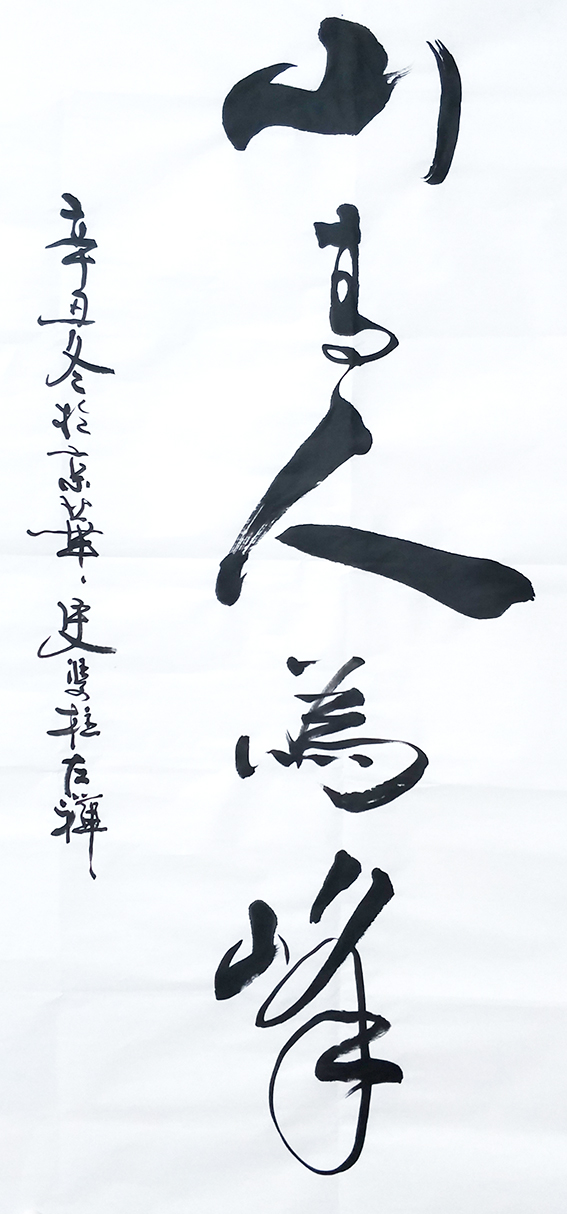 山高人為峰
辛丑冬於京華史雙柱左禪